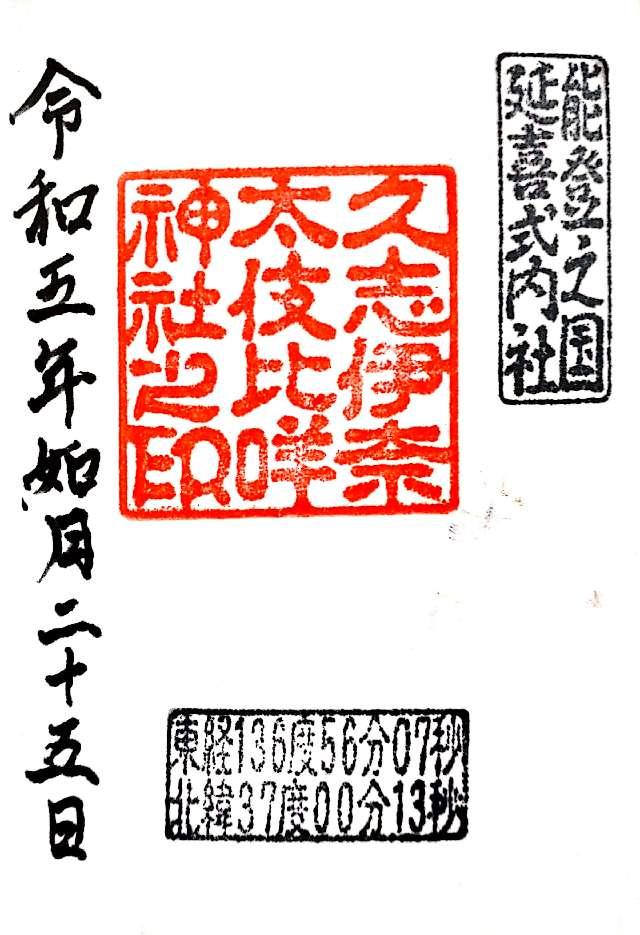 能登之国
延喜式内社
久志伊奈
太伎比咩
神社之印
令和五年如月二十五日
東経136度56分07秒
北緯37度00分13秒